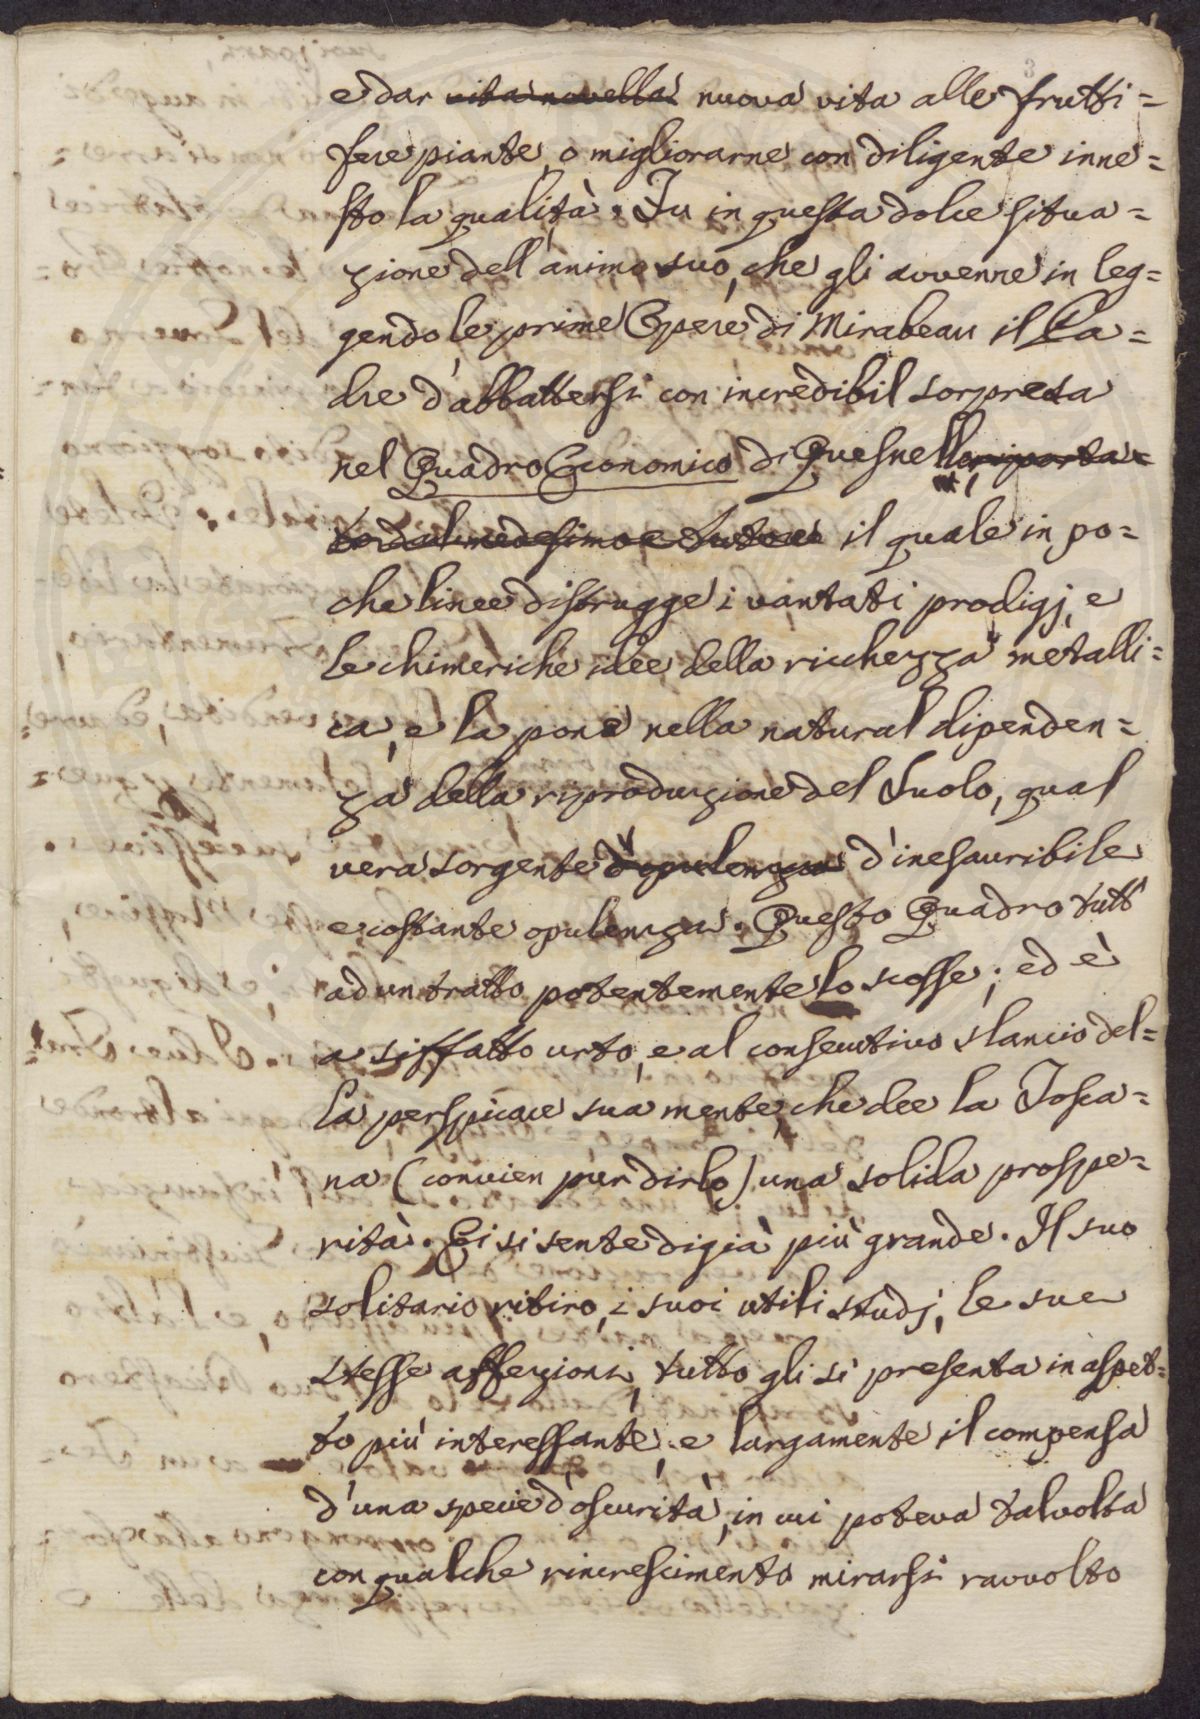 e dar vita novella nuova vita alle frutti=
fere piante, o migliorarne con diligente inne=
sto la qualità. Fu in questa dolce situa=
zione dell'animo suo, che gli avvenne in leg=
gendo le prime Opere di Mirabeau il Pa=
dre d'abbattersi con incredibil sorpresa
nel Quadro Economico di Quesnell, riporta=
to dal medesimo Autore il quale in po=
che linee distrugge i vantati prodigj, e
le chimeriche idee della ricchezza metalli=
ca, e la pone nella natural dipenden=
za della riproduzione del Suolo, qual
vera sorgente d'opulenza d'inesauribile
e costante opulenza. Questo Quadro tutt'
ad un tratto potentemente lo scosse; ed è
a siffatto urto, e al consecutivo slancio del=
la perspicace sua mente, che dee la Tosca=
na (convien pur dirlo) una solida prospe=
rità. Ei si sente digià più grande. Il suo
solitario ritiro, i suoi utili studj, le sue
stesse affezioni, tutto gli si presenta in aspet=
to più interessante, e largamente il compensa
d'una specie d'oscurità, in cui poteva talvolta
con qualche rincrescimento mirarsi ravvolto